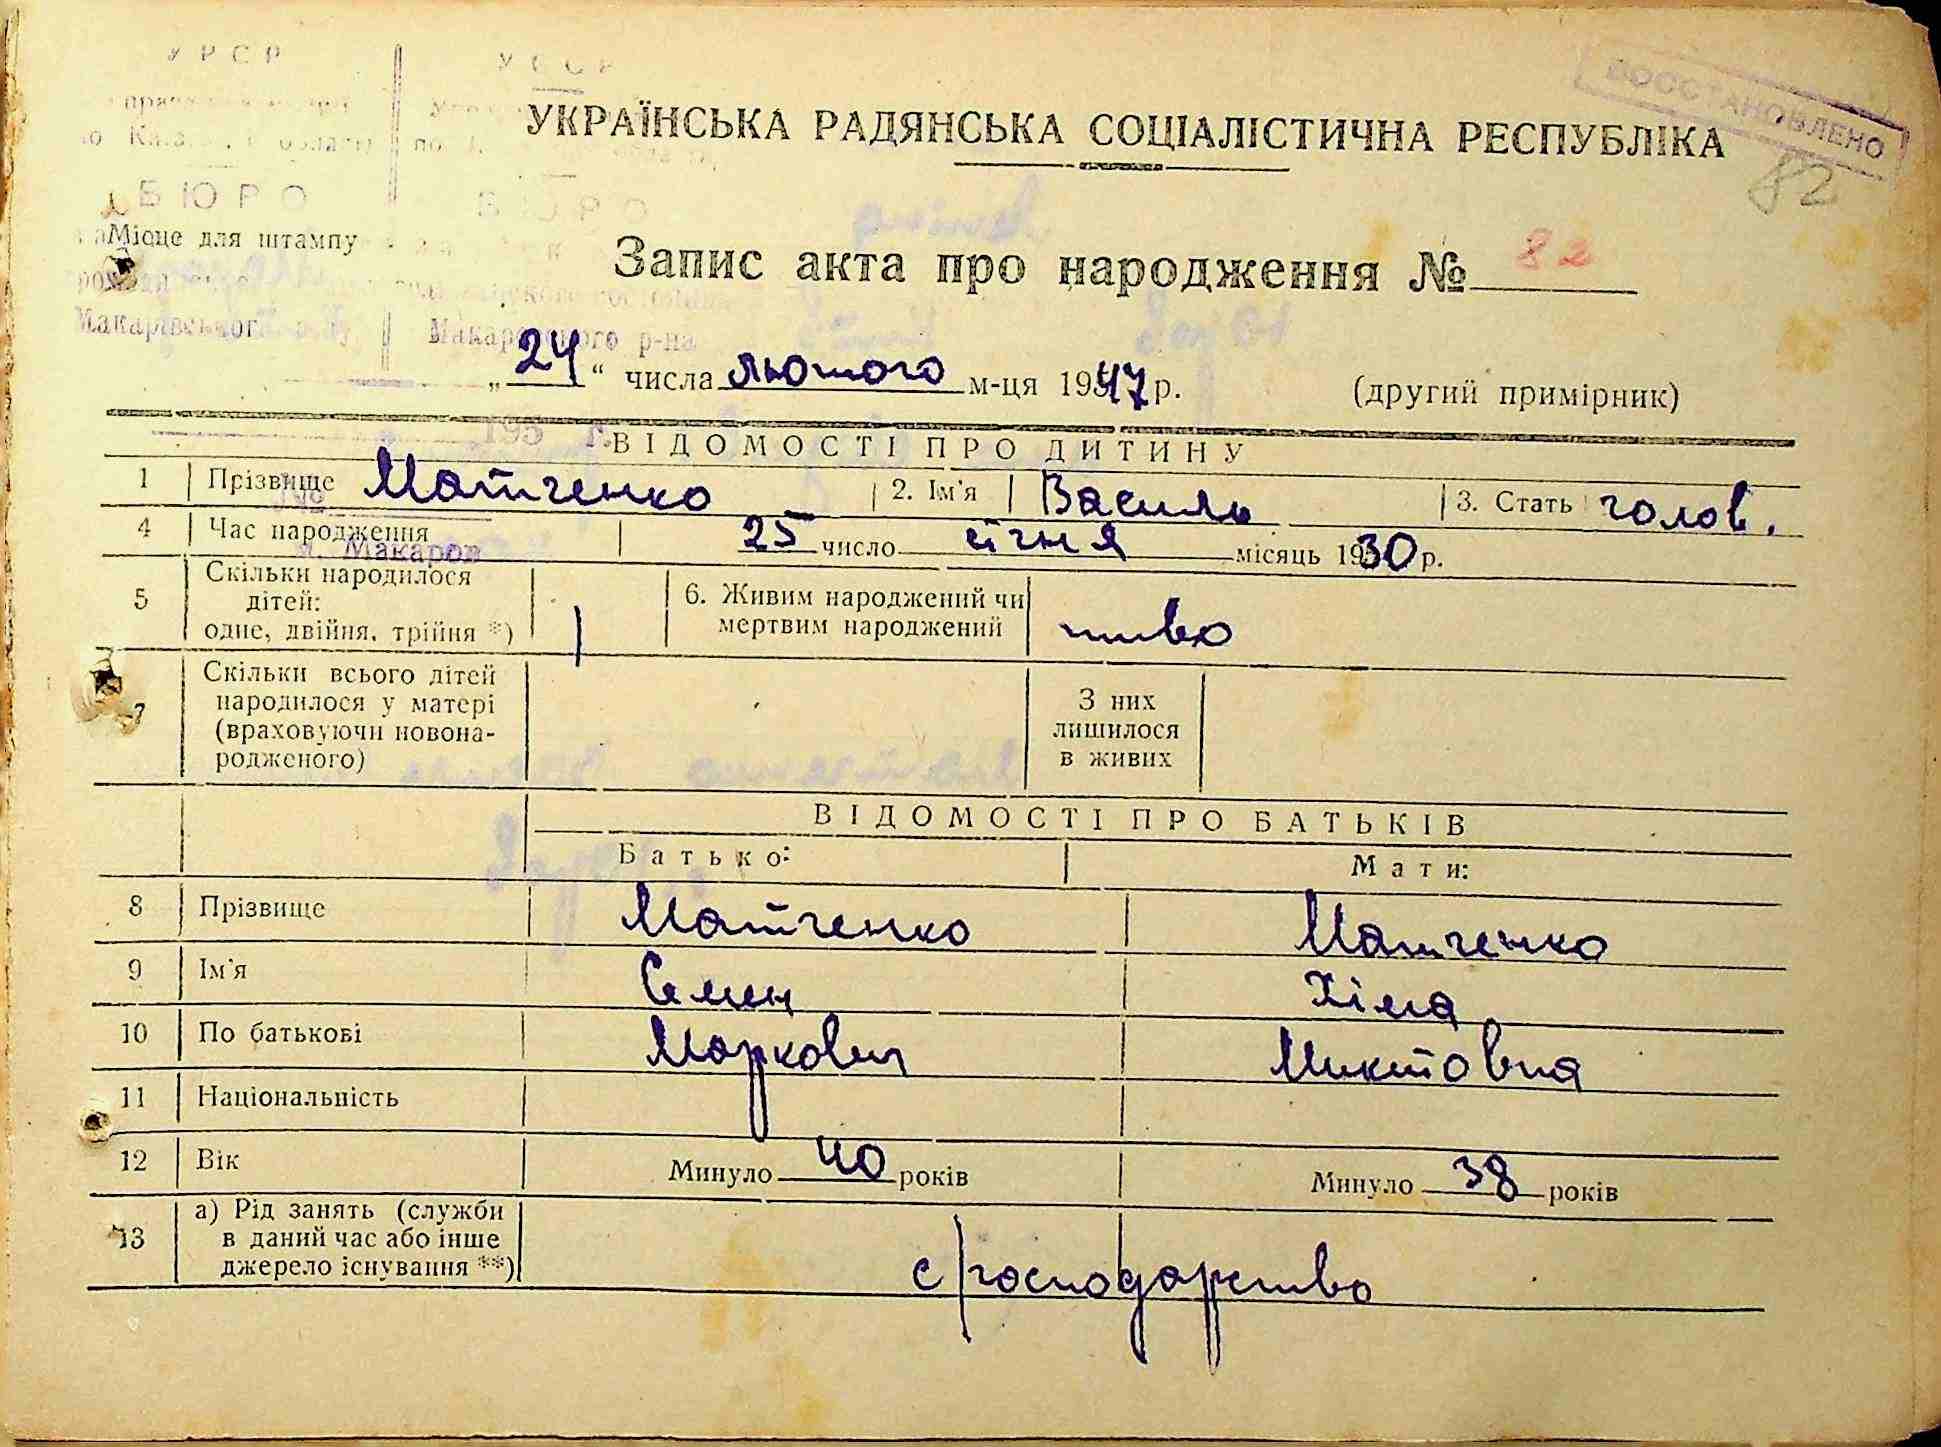 УРСР
УССР
ВОССТАНОВЛЕНО
82
УКРАЇНСЬКА РАДЯНСЬКА СОЦІАЛІСТИЧНА РЕСПУБЛІКА
БЮРО
БЮРО
Місце для штампу
Запис акта про народження № 82
Макарівського р-ну
Макаровского р-на
„24“ числа лютого м-ця 1947 р. (другий примірник)
195 г.
ВІДОМОСТІ ПРО ДИТИНУ
1 Прізвище Матченко 2. Ім'я Василь 3. Стать чолов.
4 Час народження 25 число січня місяць 1930 р.
м. Макаров
5 Скільки народилося дітей: одне, двійня, трійня *) 1 6. Живим народжений чи мертвим народжений живо
7 Скільки всього дітей народилося у матері (враховуючи новона-родженого) З них лишилося в живих
ВІДОМОСТІ ПРО БАТЬКІВ
Батько: Мати:
8 Прізвище Матченко Матченко
9 Ім'я Семен Хіма
10 По батькові Маркович Микитовна
11 Національність
12 Вік Минуло 40 років Минуло 38 років
13 а) Рід занять (служби в даний час або інше джерело існування **) с/господарство